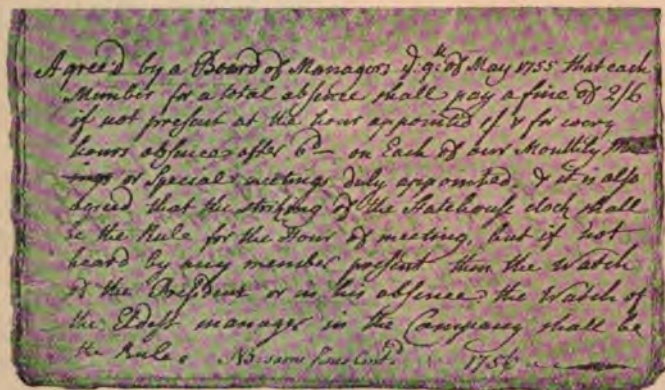 Agreed by a Board of Managers ye 9th of May 1755 that each
Member for a total absence shall pay a fine of 2/6
if not present at the hour appointed 1/ & for every
hours absence after 6d on Each of our Monthly Meet
ings or Special meetings duly appointed. & it is also
agreed that the striking of the Statehouse clock shall
be the Rule for the Hour of meeting, but if not
heard by any member present then the Watch
of the President or in his absence the Watch of
the Eldest manager in the Company shall be
the Rule. NB: same Rules Contd 1756